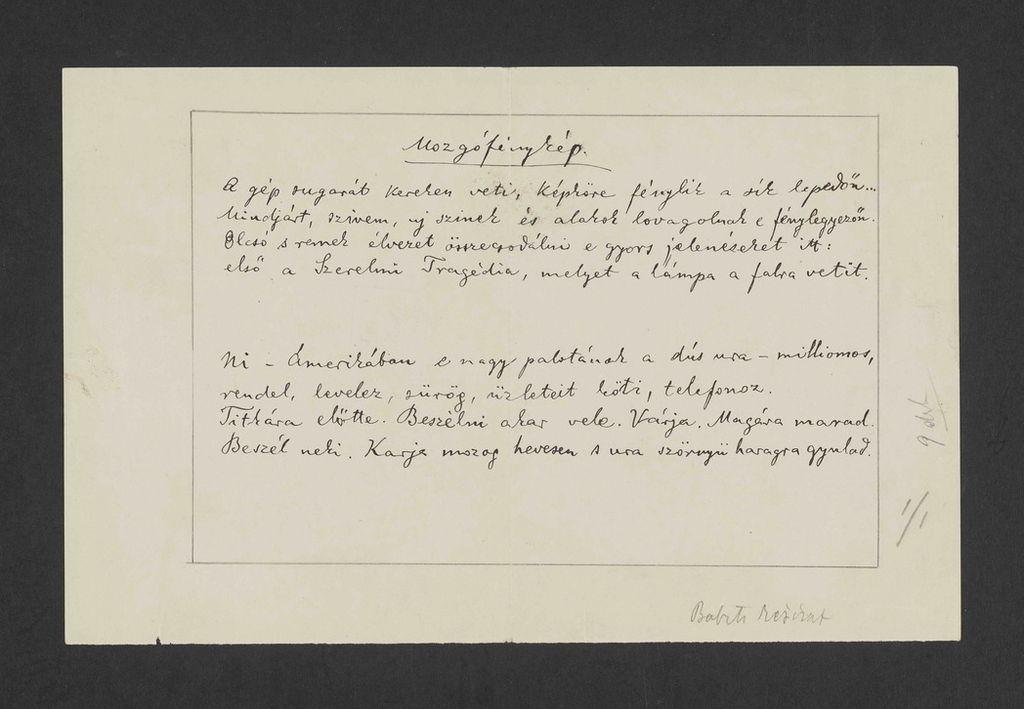 Mozgófénykép.
A gép sugarát kereken veti, képköre fénylik a sík lepedőn...
Mindjárt, szívem, uj szinek és alakok lovagolnak e fénylegyezőn.
Olcsó s remek élvezet összecsodálni e gyors jelenéseket itt:
első a Szerelmi Tragédia, melyet a lámpa a falra vetit.
Ni - Amerikában e nagy palotának a dús ura - milliomos,
rendel, levelez, sürög, üzleteit köti, telefonoz.
Titkára előtte. Beszélni akar vele. Várja. Magára marad.
Beszél neki. Karja mozog hevesen s ura szörnyü haragra gyulad.
9 drb
1/1
Babits kézirat